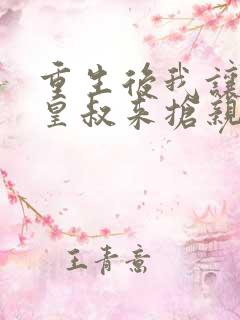 重生後我讓
皇叔來搶親
王青意